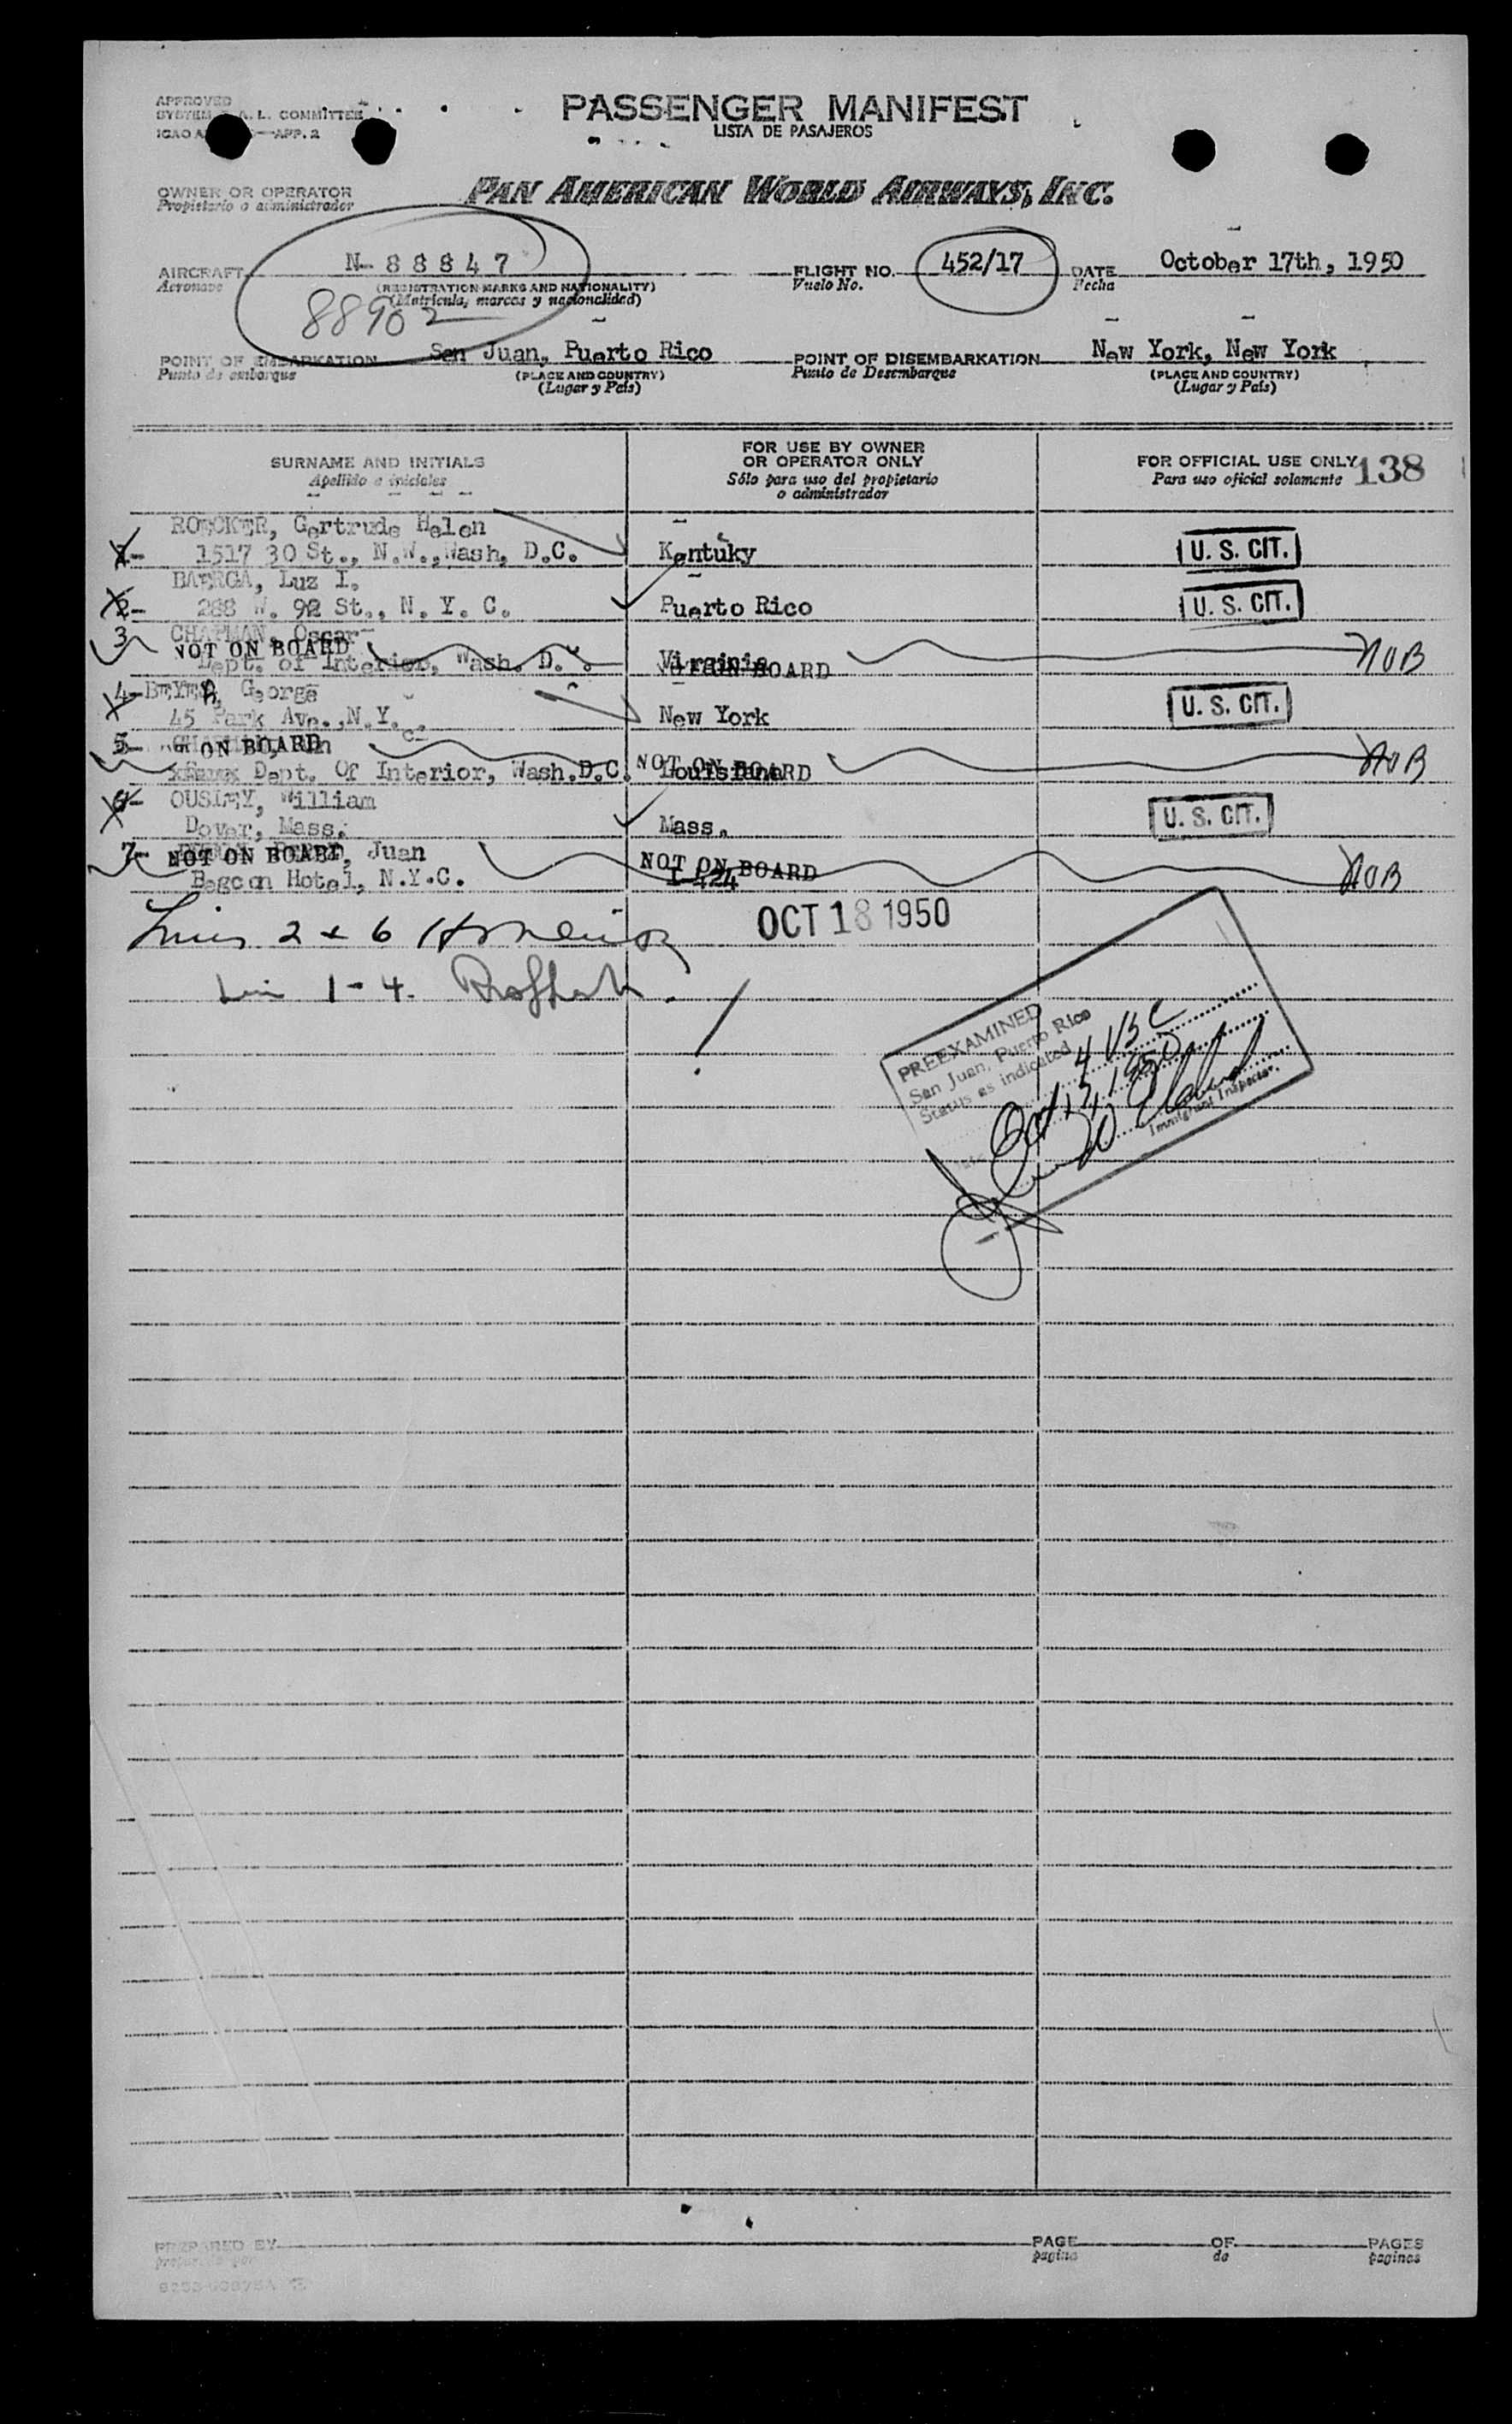 APPROVED
SYSTEM A. L. COMMITTEE
ICAO APP. 2
PASSENGER MANIFEST
LISTA DE PASAJEROS
OWNER OR OPERATOR
Propietario o administrador
PAN AMERICAN WORLD AIRWAYS, INC.
AIRCRAFT N-88847 FLIGHT NO. 452/17 DATE October 17th, 1950
Aeronave (REGISTRATION MARKS AND NATIONALITY) Vuelo No. Fecha
(Matricula, marcas y nacionalidad)
88902
POINT OF EMBARKATION San Juan, Puerto Rico POINT OF DISEMBARKATION New York, New York
Punto de embarque (PLACE AND COUNTRY) Punto de Desembarque (PLACE AND COUNTRY)
(Lugar y País) (Lugar y País)
SURNAME AND INITIALS FOR USE BY OWNER OR OPERATOR ONLY FOR OFFICIAL USE ONLY 138
Apellido e iniciales Sólo para uso del propietario o administrador Para uso oficial solamente
ROECKER, Gertrude Helen
1- 1517 30 St., N.W., Wash, D.C. Kentuky U. S. CIT.
BAERGA, Luz I.
2- 288 W. 92 St., N. Y. C. Puerto Rico U. S. CIT.
3 CHAPMAN, Oscar
NOT ON BOARD
Dept. of Interior, Wash. D.C. Virginia NOT ON BOARD NOB
4- BEYER, George
45 Park Ave., N.Y. New York U. S. CIT.
5- NOT ON BOARD
Dept. Of Interior, Wash.D.C. Louisiana NOT ON BOARD NOB
6- OUSLEY, William
Dover, Mass. Mass. U. S. CIT.
7- NOT ON BOARD, Juan
Beacon Hotel, N.Y.C. I-424 NOT ON BOARD NOB
2 + 6
OCT 18 1950
1-4.
PREEXAMINED
San Juan, Puerto Rico
Status as indicated
4 USC
Oct 17, 1950
Immigrant Inspector.
PREPARED BY PAGE OF PAGES
preparado por pagina de paginas